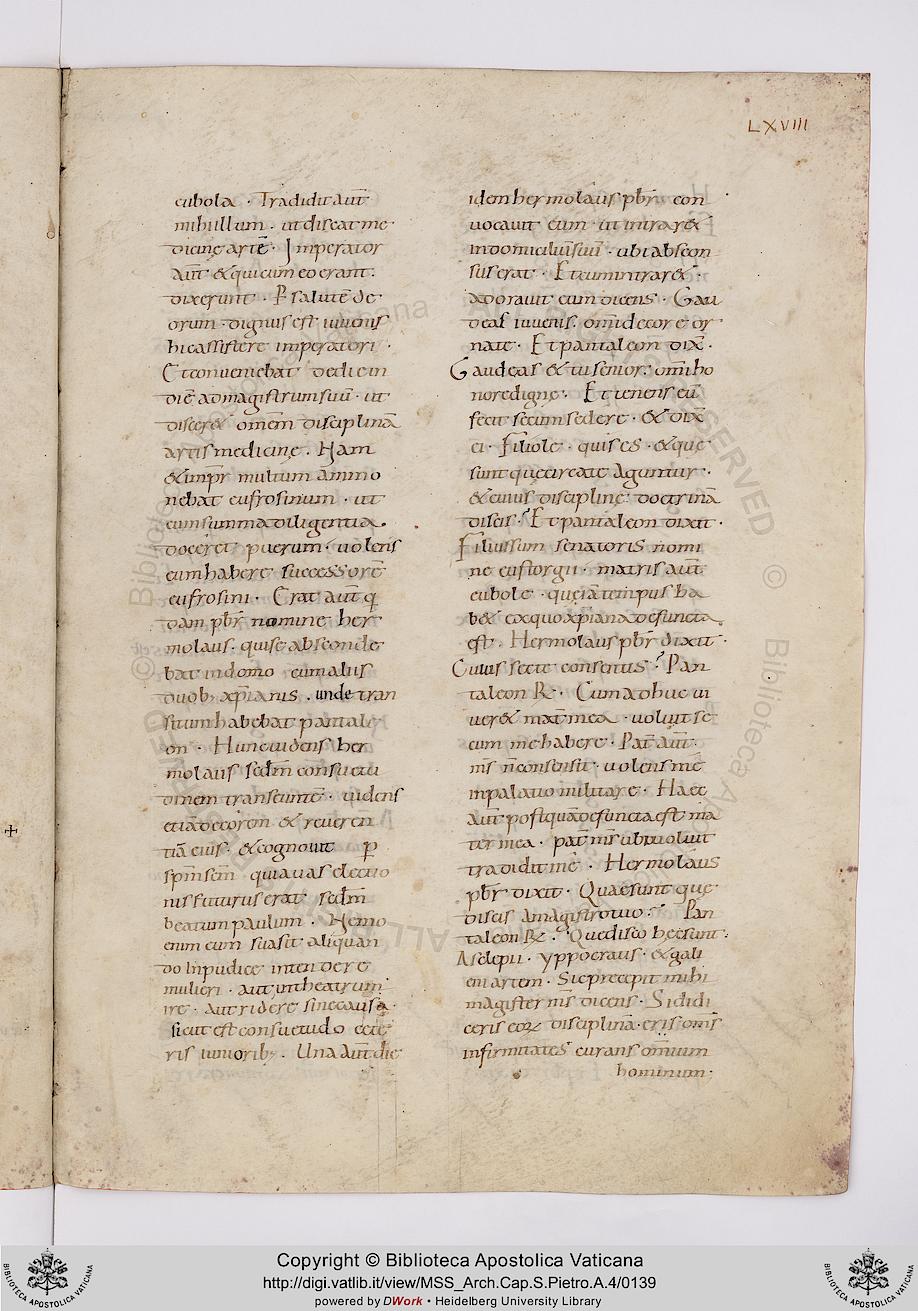 LXVIII
eubola · Tradidit aut̄
mihi illum · ut discat me
dicinę artē · Imperator
aut̄ & qui cum eo erant ·
dixerunt · P̄ salutē de
orum · dignus est iuvenis
hic assistere imperatori ·
Et conveniebat de die in
diē ad magistrum suū · ut
discer& omēm disciplinā
artis medicinę · Nam
& imp̄r multum ammo
nebat eufrosinum · ut
cum summa diligentia ·
doceret puerum · volens
eum habere successorē
eufrosini · Erat aut̄ q
dam pbr̄ nomine her
molaus · qui se absconde
bat in domo cum aliis
duob; xp̄ianis · unde tran
situm habebat pantale
on · Hunc videns her
molaus sedm̄ consuetu
dinem transeuntē · videns
etiā decorem & reveren
tiā eius · & cognovit p̄
spm̄ scm̄ quia vas electio
nis futurus erat sedm̄
beatum paulum · Nemo
enim eum suasit aliquan
do inpudice intendere
mulieri · aut in theatrum
ire · aut ridere sine causa ·
sicut est consuetudo cete
ris iunorib; · Una aut̄ die
idem hermolaus pbr̄ con
vocavit eum · ut intrar&
in domiciliūsuū · ubi abscon
sus erat · Et cum intrar& ·
adoravit eum dicens · Gau
deas iuvenis · omī decore or
nate · Et pantaleon dix̄ ·
Gaudeas & tu senior · omī ho
nore digne · Et tenens eū
fecit secum sedere · & dix̄
ei · Filiole · quis es · & quę
sunt quę circa te aguntur ·
& cuius disciplinę doctrinā
discis · Et pantaleon dixit ·
Filius sum senatoris nomi
ne eustorgii · matris aut̄
eubole · quę iā tempus ha
b& ex quo xp̄iana defuncta
est · Hermolaus pbr̄ dixit ·
Cuius secte consentis? Pan
taleon R̄ · Cum adhuc vi
ver& mat̄ mea · voluit se
cum me habere · Pat̄ aut̄
m̄s n̄ consensit · volens me
in palatio militare · Haec
aut̄ postquā defuncta est ma
ter mea · pat̄ m̄s ubi voluit
tradidit mē · Hermolaus
pbr̄ dixit · Quae sunt quę
discis a magistro tuo? Pan
taleon R̄ · Que disco hęc sunt ·
Asclepii · yppocratis · & gali
eni artem · Sic precepit mihi
magister m̄s dicens · Si didi
ceris eoꝝ disciplinā · eris omīs
infirmitates curans omīum
hominum ·
Copyright © Biblioteca Apostolica Vaticana
http://digi.vatlib.it/view/MSS_Arch.Cap.S.Pietro.A.4/0139
powered by DWork • Heidelberg University Library
BIBLIOTECA APOSTOLICA VATICANA
BIBLIOTECA APOSTOLICA VATICANA